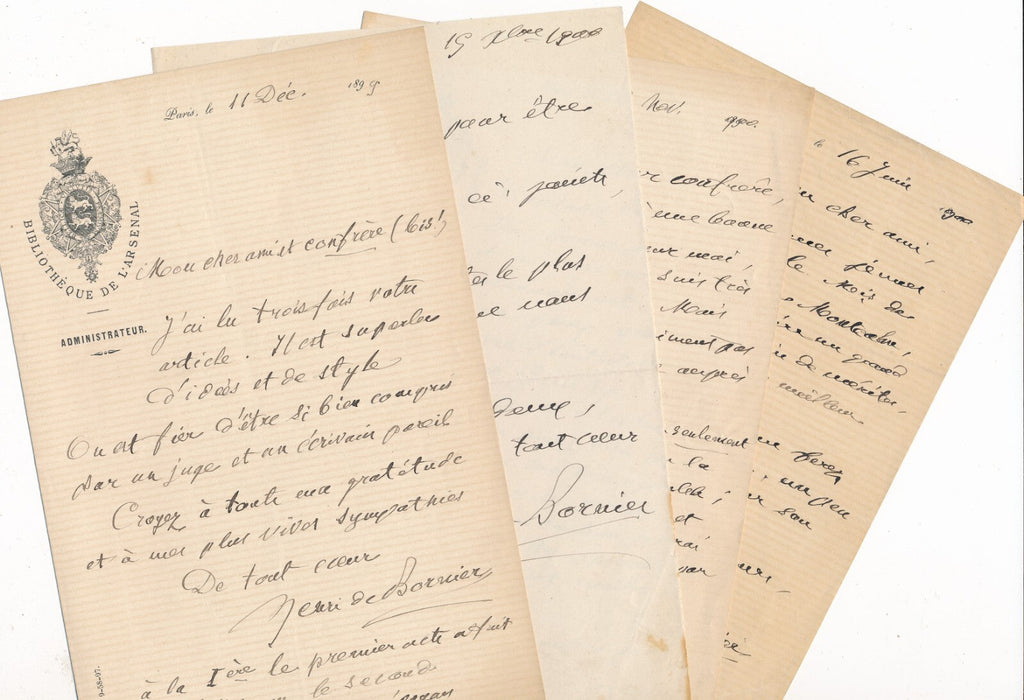 Paris, le 11 Déc. 1899
BIBLIOTHÈQUE DE L'ARSENAL
ADMINISTRATEUR.
Mon cher ami et confrère (bis!)
J'ai lu trois fois votre
article. Il est superbe
d'idées et de style
On est fier d'être si bien compris
par un juge et un écrivain pareil
Croyez à toute ma gratitude
et à mes plus vives sympathies
De tout cœur
Henri de Bornier
à la 1ère le premier acte a fait
le second
9-58-97.
15 Xbre 1900
pour être
le plus
nous
tout cœur
Bornier
Nov. 1900.
confrère,
une bonne
suis très
Mais
pas
auprès
seulement
la
et
le 16 Juin 1900
cher ami,
le Mois de
Montcalm,
un grand
de mérite,
meilleur
ferez
un peu
son